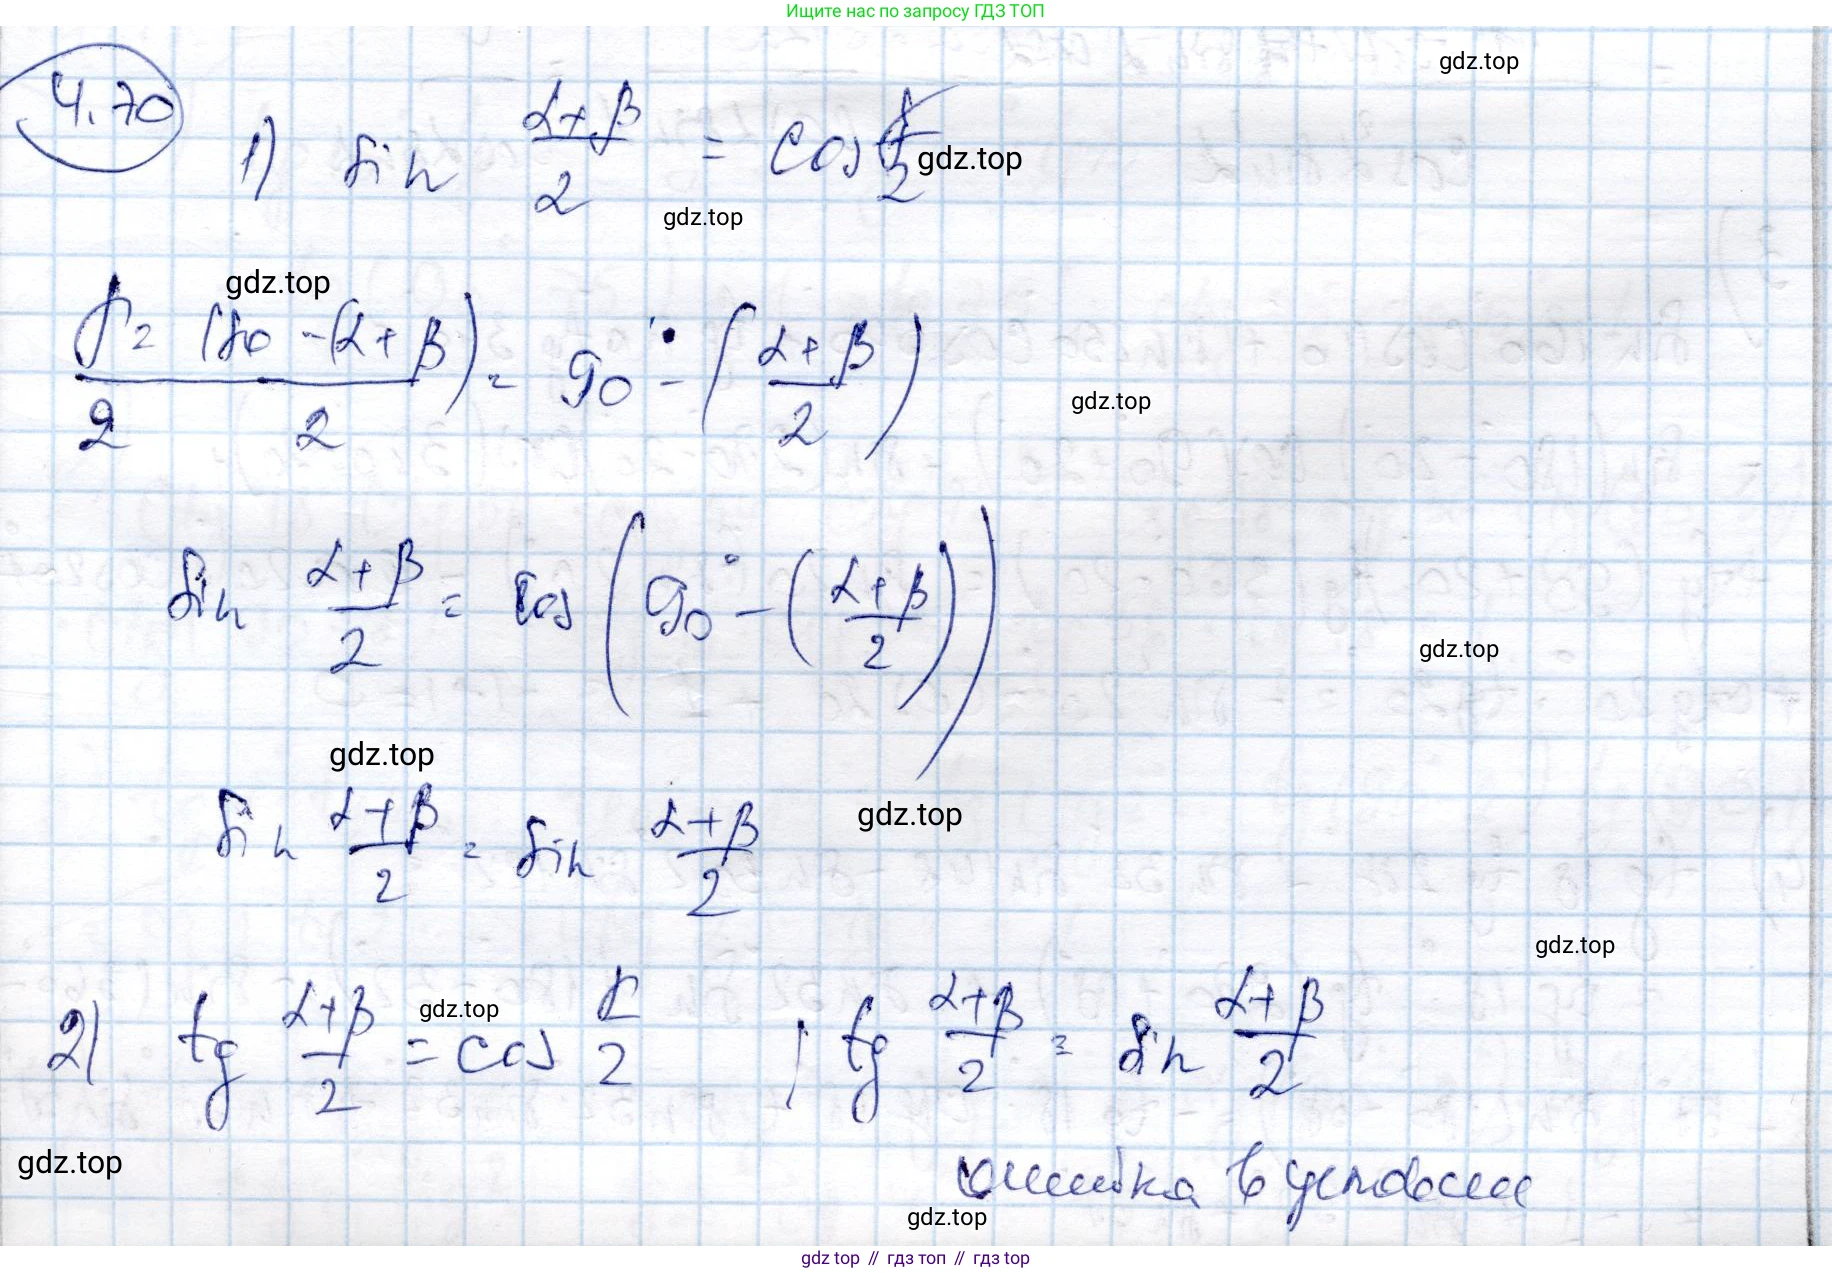 Ищите нас по запросу ГДЗ ТОП
gdz.top
4.70
1) sin (α+β)/2 = cos γ/2
gdz.top
gdz.top
gdz.top
γ/2 = (180-(α+β))/2 = 90° - ((α+β)/2)
gdz.top
sin (α+β)/2 = cos (90° - ((α+β)/2))
gdz.top
gdz.top
sin (α+β)/2 = sin (α+β)/2
gdz.top
gdz.top
2) tg (α+β)/2 = cos γ/2 ; tg (α+β)/2 = sin (α+β)/2
gdz.top
gdz.top
ошибка в условии
gdz.top
gdz top // гдз топ // гдз top